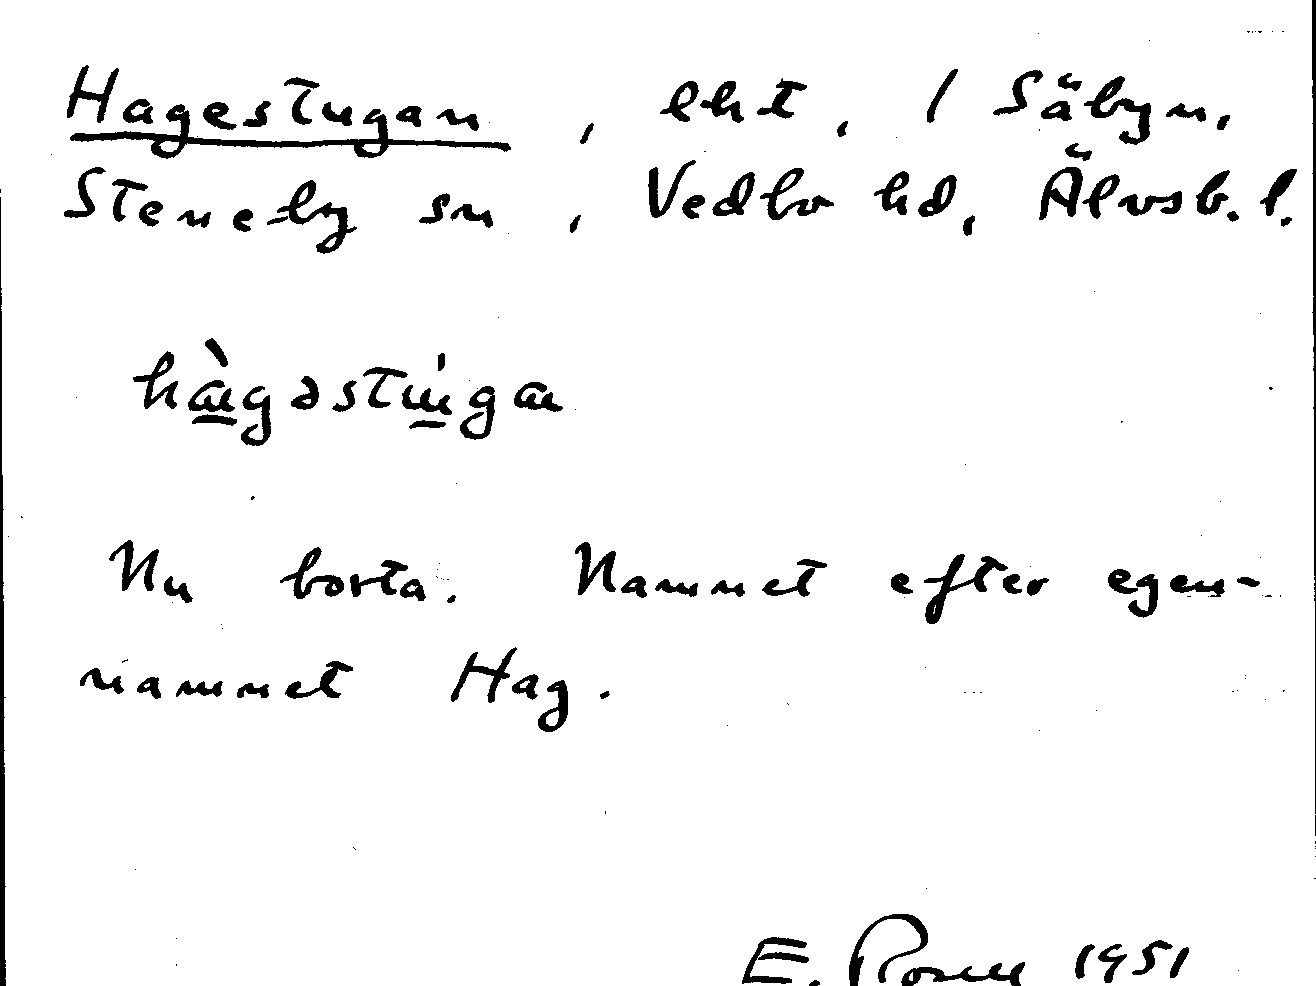 Hagestugan, lht, 1 Säbyn,
Steneby sn, Vedbo hd, Älvsb. l.
hàgəstúga
Nu borta. Namnet efter egen-
namnet Hag.
E. Rosell 1951